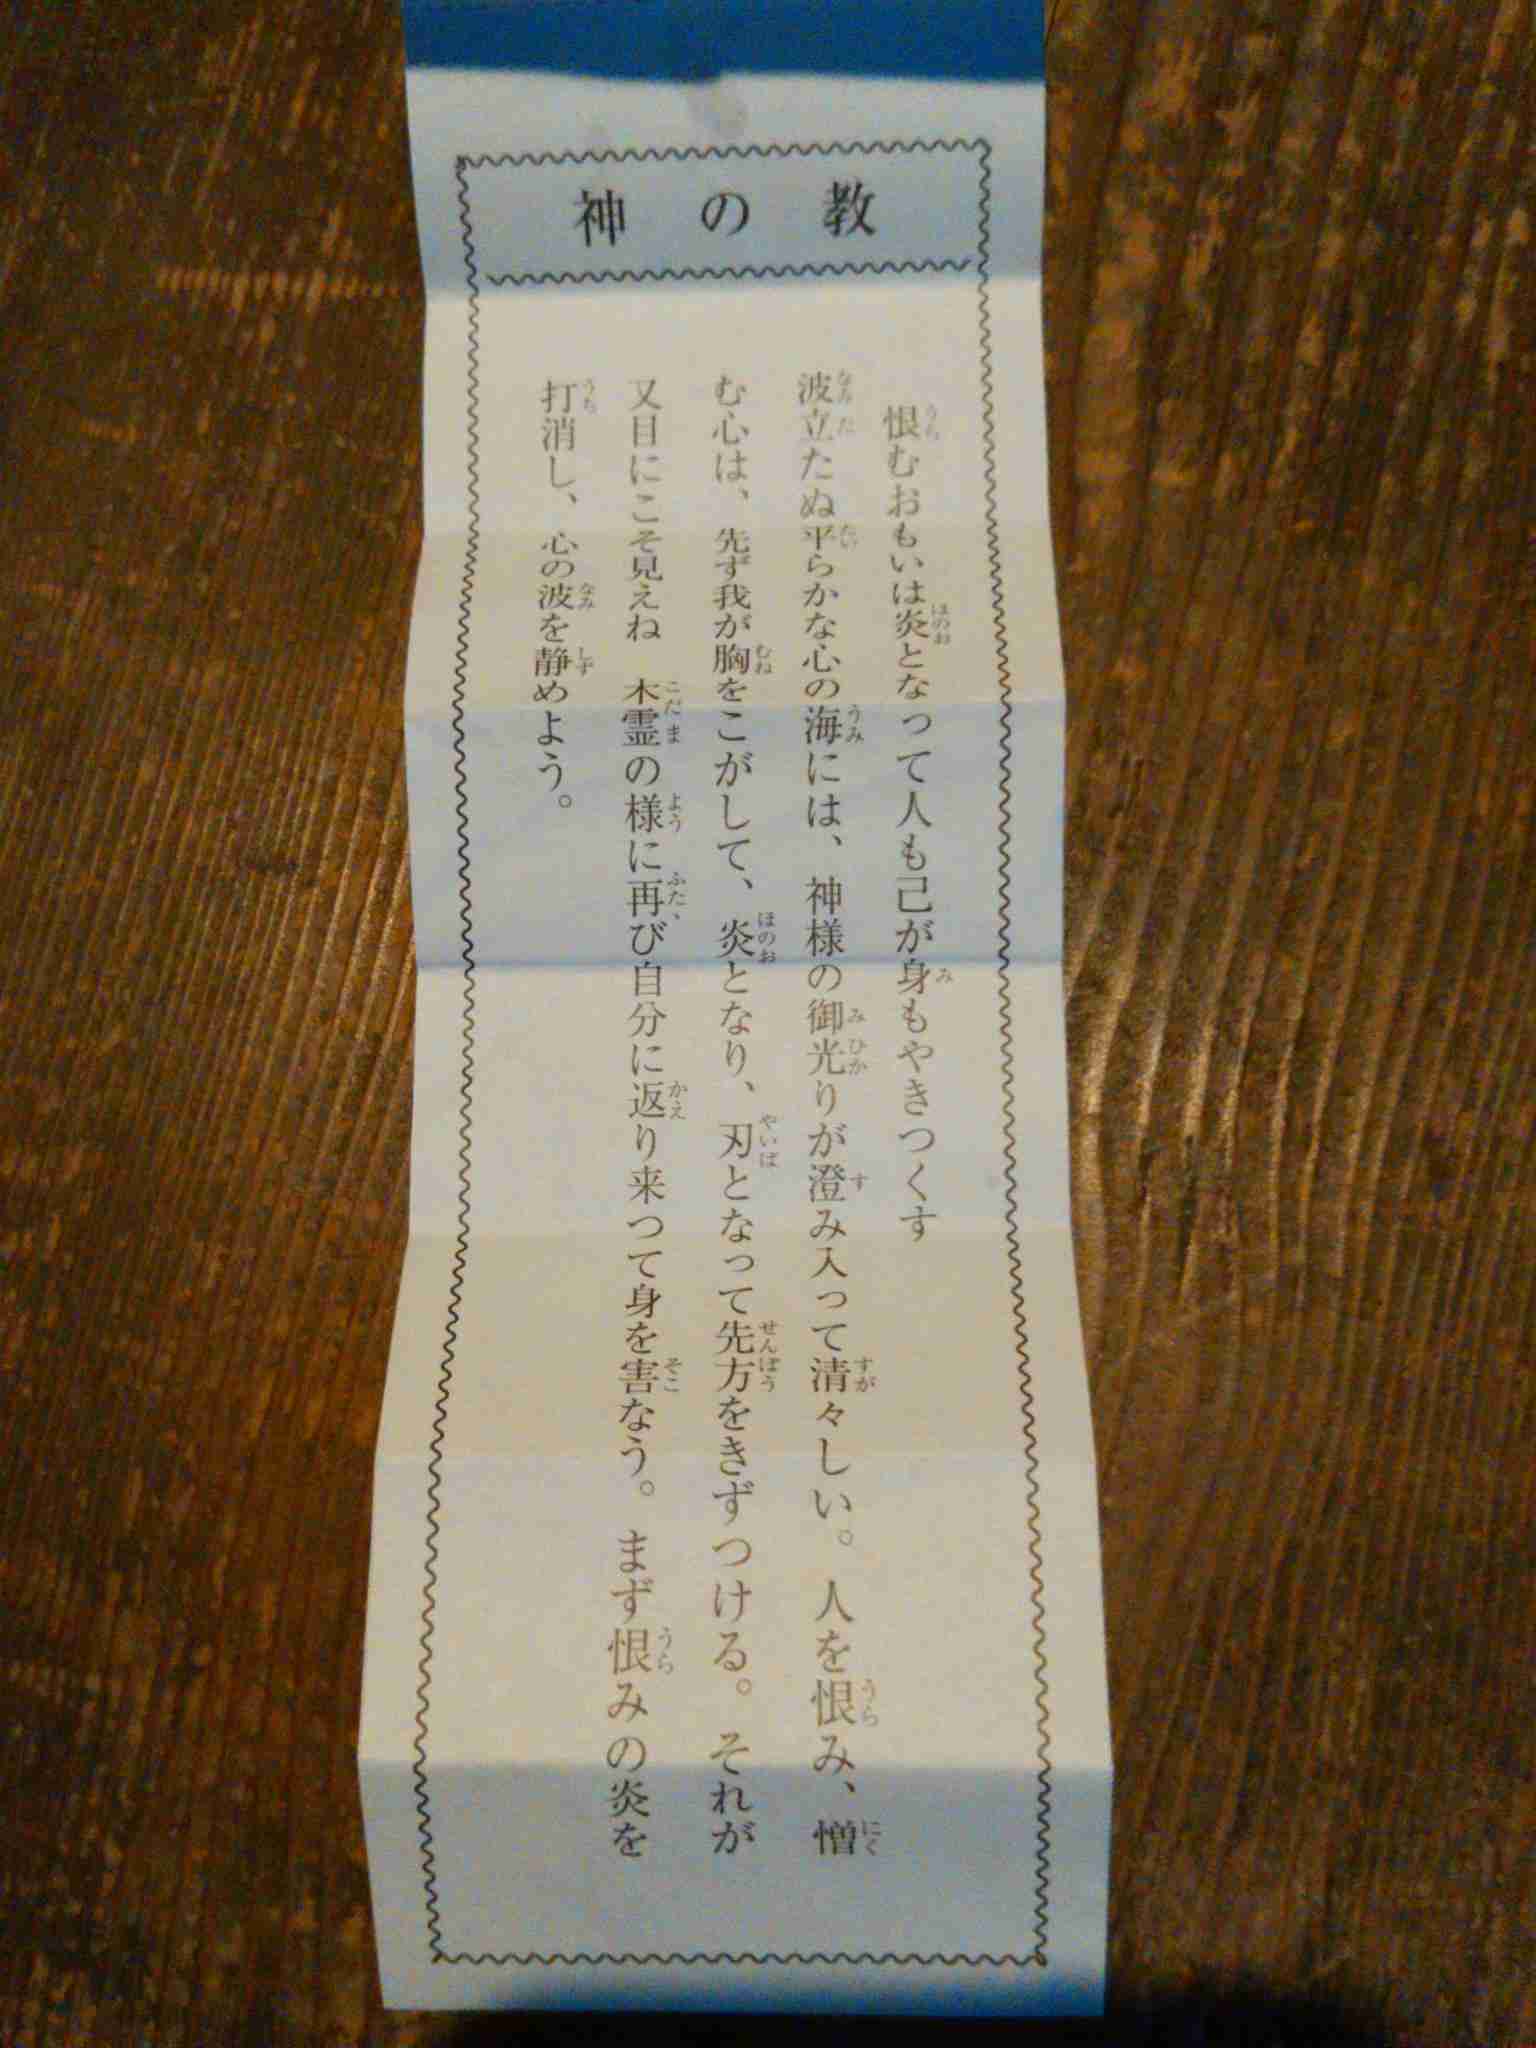 神の教
恨むおもいは炎となって人も己が身もやきつくす
波立たぬ平らかな心の海には、神様の御光りが澄み入って清々しい。人を恨み、憎
む心は、先ず我が胸をこがして、炎となり、刃となって先方をきずつける。それが
又目にこそ見えね　木霊の様に再び自分に返り来つて身を害なう。まず恨みの炎を
打消し、心の波を静めよう。